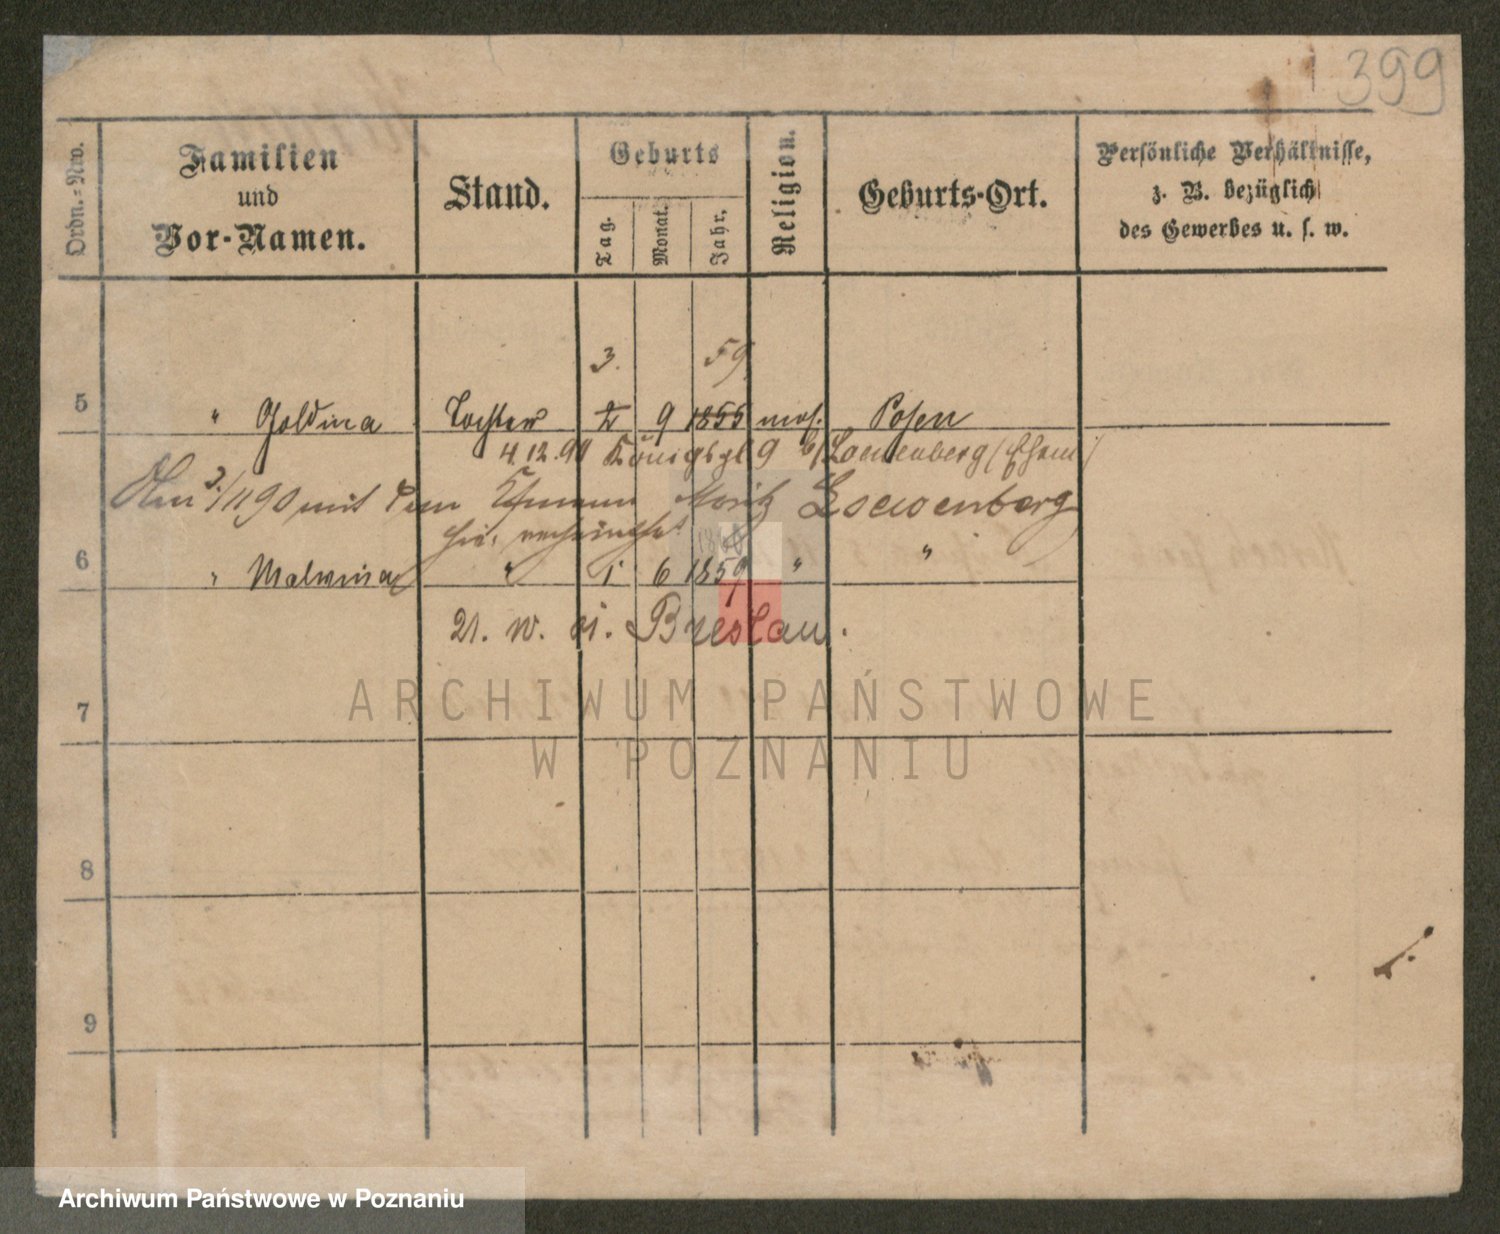 399
Ordn.-Nro.
Familien
und
Vor-Namen.
Stand.
Geburts
Tag.
Monat.
Jahr.
Religion.
Geburts-Ort.
Persönliche Verhältnisse,
z. B. bezüglich
des Gewerbes u. s. w.
3. 59
5 " Goldina Tochter 2 9 1855 mos. Posen
4.12.90 Königspl 9 b/ Loewenberg (Eham)
Am 3/11 90 mit dem Kfmann Moritz Loewenberg
hier verheirathet
1860
6 " Malwina " 1 6 1859 " "
21. 10. 01. Breslau.
7
8
9
ARCHIWUM PAŃSTWOWE
W POZNANIU
Archiwum Państwowe w Poznaniu